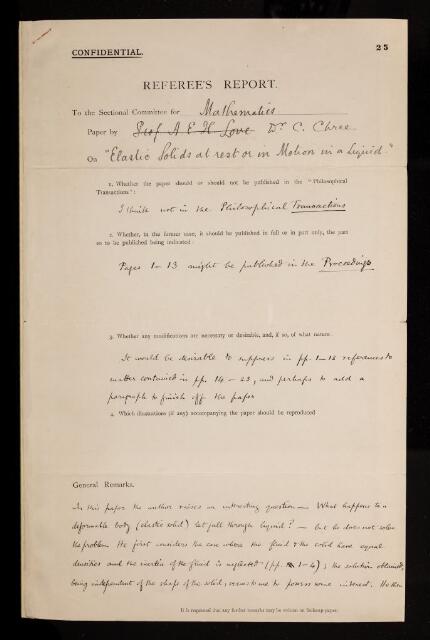 CONFIDENTIAL.
25
REFEREE'S REPORT.
To the Sectional Committee for Mathematics
Paper by Prof A E H Love Dr C. Chree
On "Elastic Solids at rest or in Motion in a Liquid"
1. Whether the paper should or should not be published in the "Philosophical
Transactions":
I think not in the Philosophical Transactions
2. Whether, in the former case, it should be published in full or in part only, the part
so to be published being indicated:
Pages 1–13 might be published in the Proceedings
3. Whether any modifications are necessary or desirable, and, if so, of what nature.
It would be desirable to suppress in pp. 1–13 references to
matter contained in pp. 14–23, and perhaps to add a
paragraph to finish off the paper
4. Which illustrations (if any) accompanying the paper should be reproduced
General Remarks.
In this paper the author raises an interesting question — What happens to a
deformable body (elastic solid) let fall through liquid? — but he does not solve
the problem. He first considers the case where the fluid & the solid have equal
densities and the inertia of the fluid is neglected (pp. 1–4); the solution obtained,
being independent of the shape of the solid, seems to me to possess some interest. He then
It is requested that any further remarks may be written on foolscap paper.